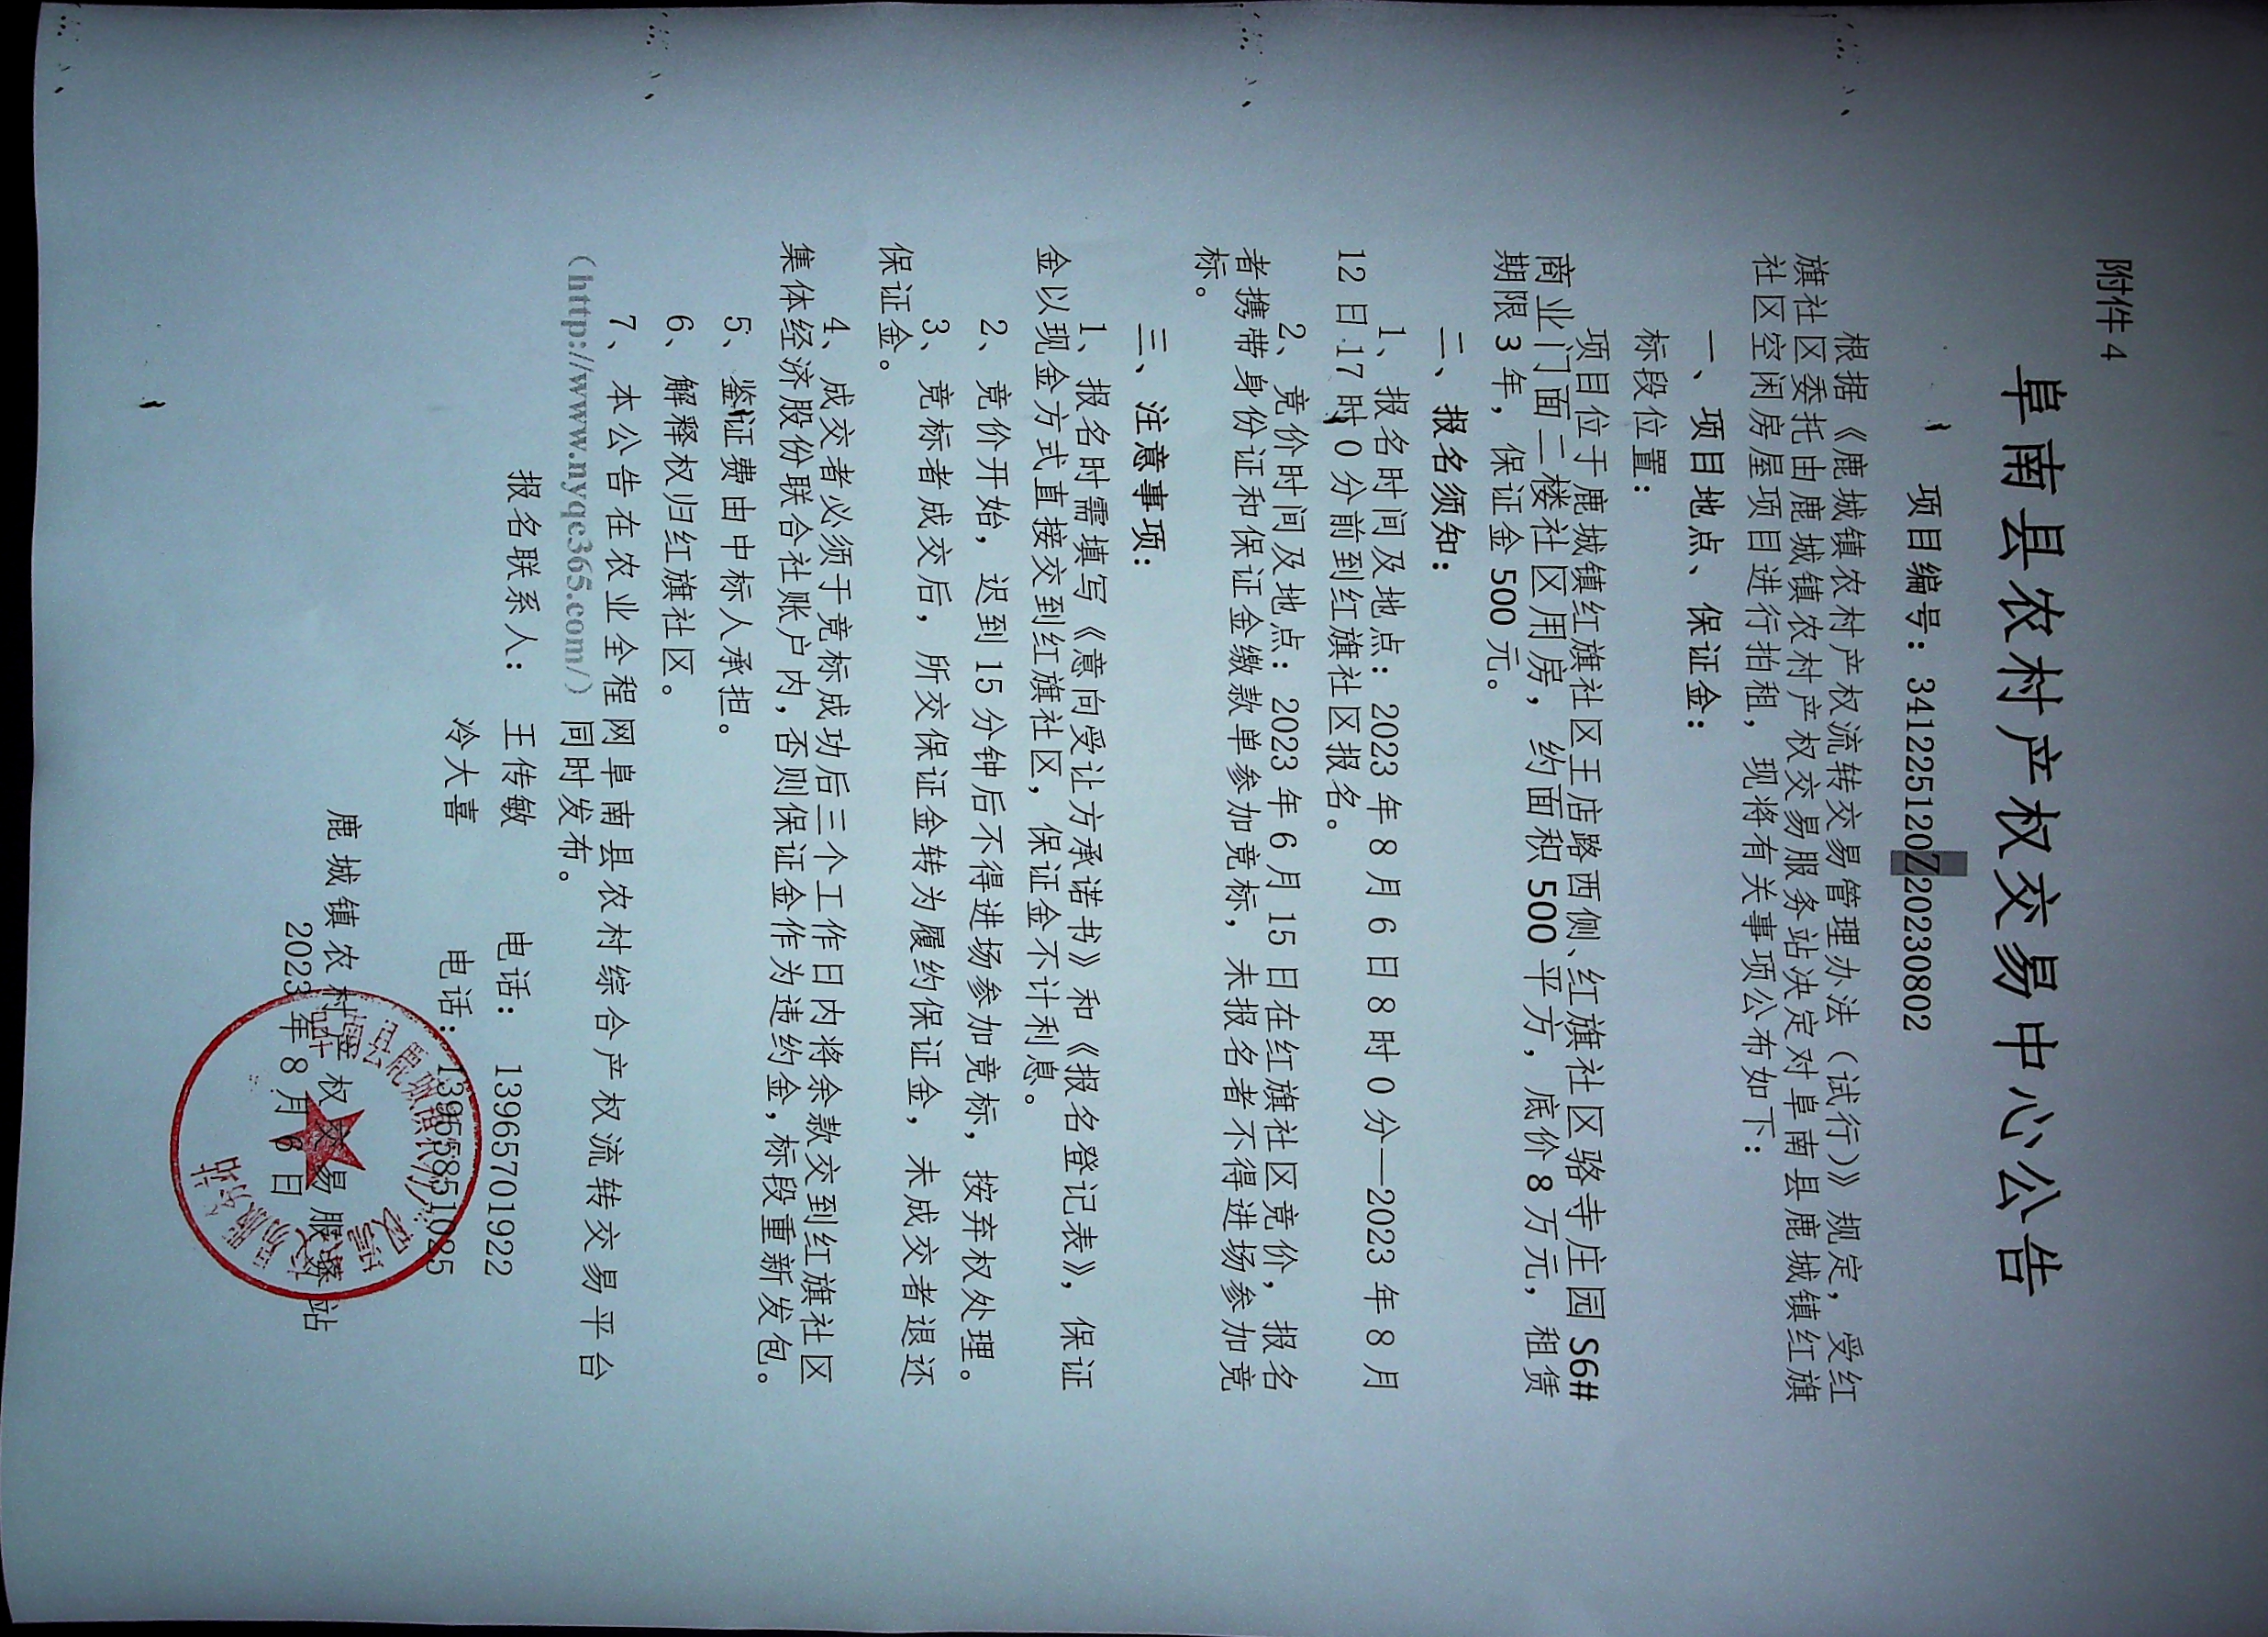 附件 4
阜南县农村产权交易中心公告
项目编号：341225120720230802
根据《鹿城镇农村产权流转交易管理办法（试行）》规定，受红
旗社区委托由鹿城镇农村产权交易服务站决定对阜南县鹿城镇红旗
社区空闲房屋项目进行拍租，现将有关事项公布如下：
一、项目地点、保证金：
标段位置：
项目位于鹿城镇红旗社区王店路西侧、红旗社区骆寺庄园 S6#
商业门面二楼社区用房，约面积 500 平方，底价 8 万元，租赁
期限 3 年，保证金 500 元。
二、报名须知：
1、报名时间及地点：2023 年 8 月 6 日 8 时 0 分—2023 年 8 月
12 日 17 时 0 分前到红旗社区报名。
2、竞价时间及地点：2023 年 6 月 15 日在红旗社区竞价，报名
者携带身份证和保证金缴款单参加竞标，未报名者不得进场参加竞
标。
三、注意事项：
1、报名时需填写《意向受让方承诺书》和《报名登记表》，保证
金以现金方式直接交到红旗社区，保证金不计利息。
2、竞价开始，迟到 15 分钟后不得进场参加竞标，按弃权处理。
3、竞标者成交后，所交保证金转为履约保证金，未成交者退还
保证金。
4、成交者必须于竞标成功后三个工作日内将余款交到红旗社区
集体经济股份联合社账户内，否则保证金作为违约金，标段重新发包。
5、鉴证费由中标人承担。
6、解释权归红旗社区。
7、本公告在农业全程网阜南县农村综合产权流转交易平台
（http://www.nyqc365.com/）同时发布。
报名联系人： 王传敏 电话： 13965701922
冷大喜 电话：13955851025
鹿城镇农村产权交易服务站
2023 年 8 月 6 日